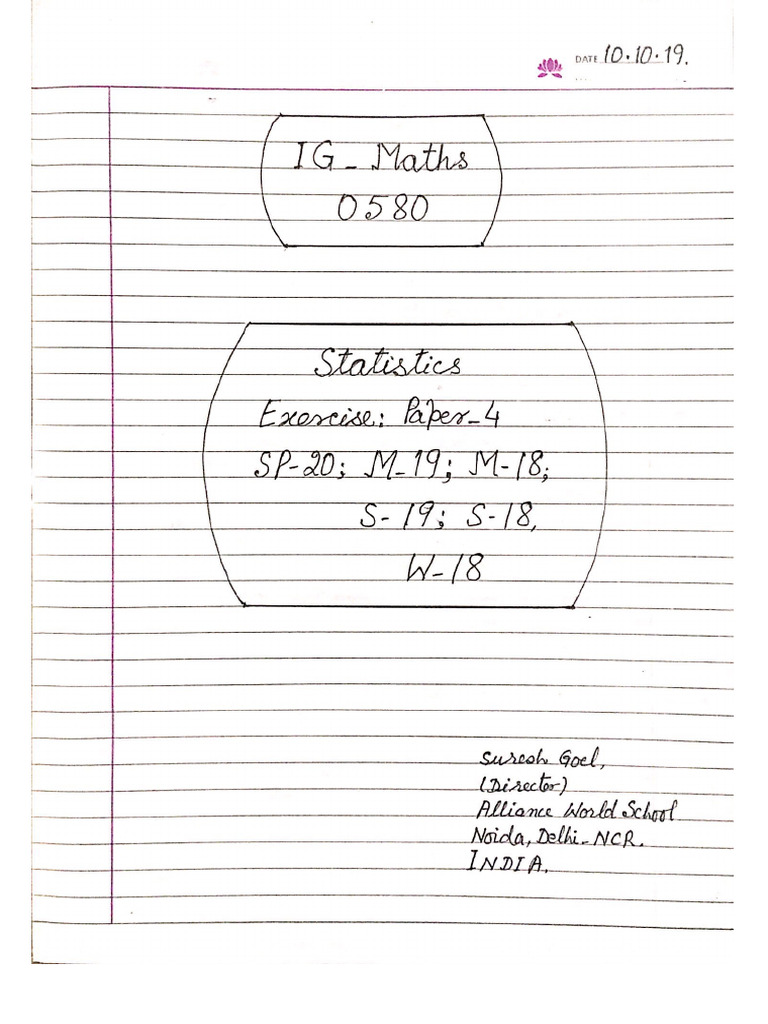 DATE 10.10.19.
IG_Maths
0580
Statistics
Exercise: Paper_4
SP-20; M_19; M-18;
S-19; S-18,
W-18
Suresh Goel,
(Director)
Alliance World School
Noida, Delhi-NCR.
INDIA.